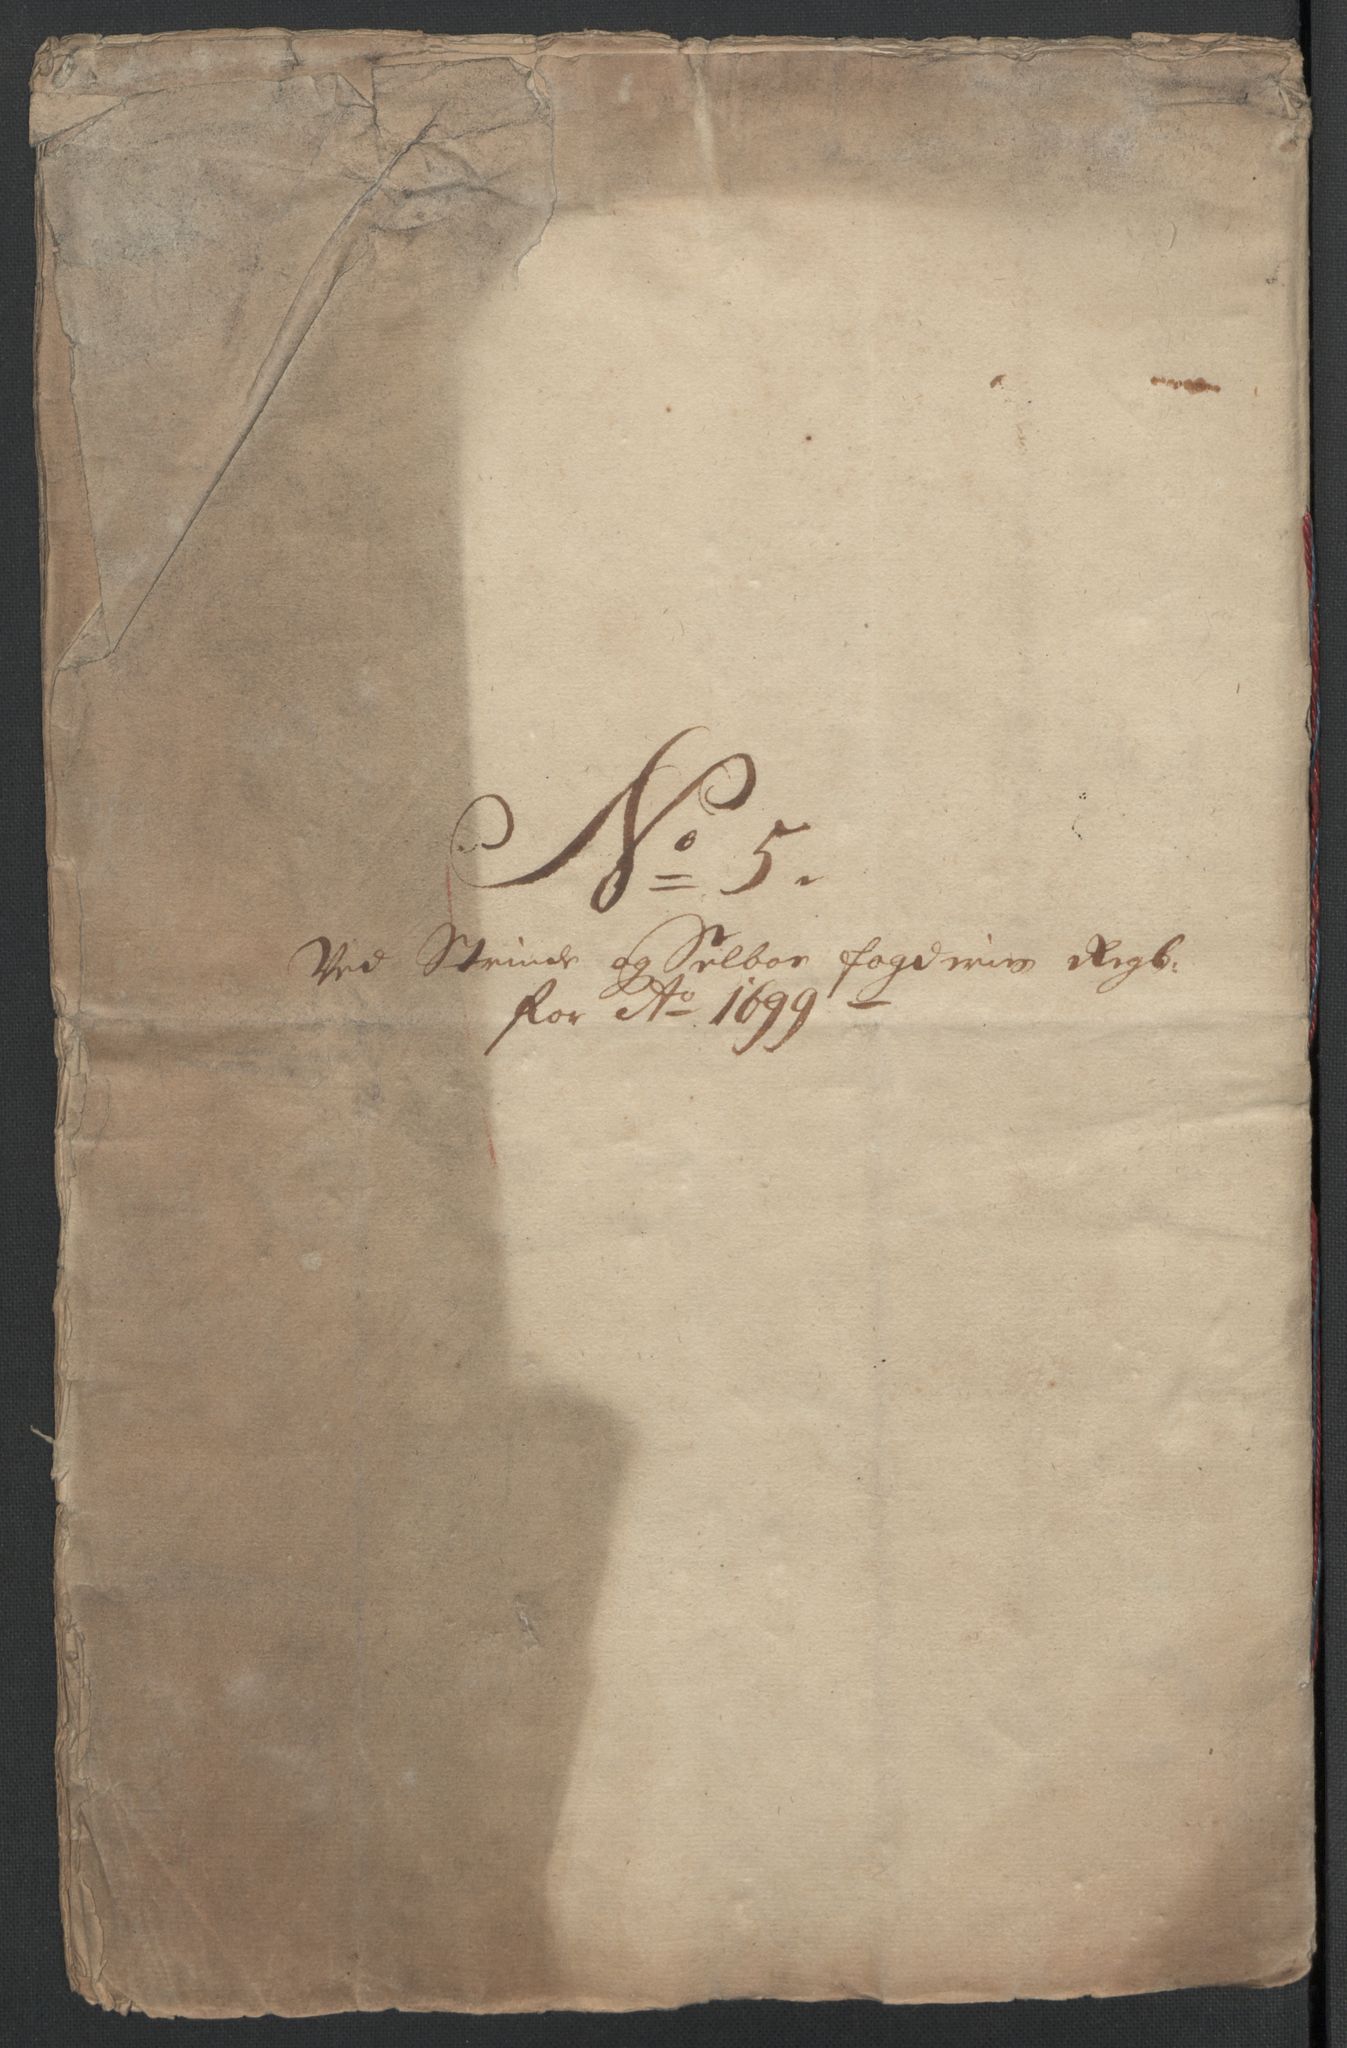 No 5.
Ved Strinde og Selboe fogderies Regb:
for Ao 1699 –